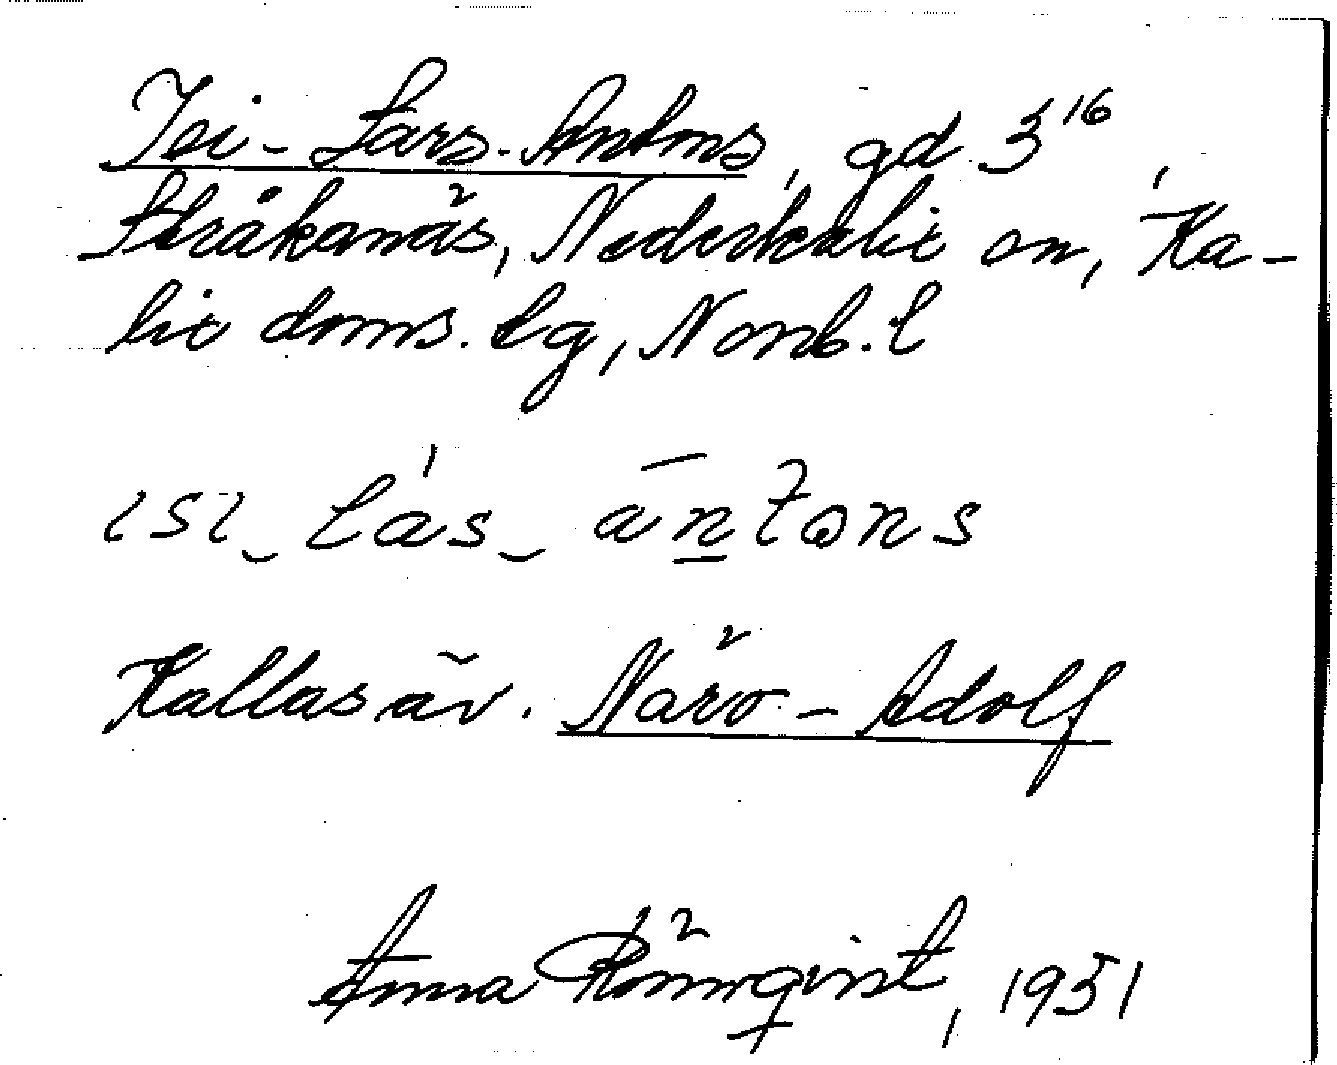 Isi-Lars-Antons, gd 3¹⁶,
Stråkanäs, Nederkalix sn, Ka-
lix doms. tg, Norrb. l
ɩsɩ_lás_āṉtɷns
Kallas äv. Närv-Adolf
Anna Rönnqvist, 1951